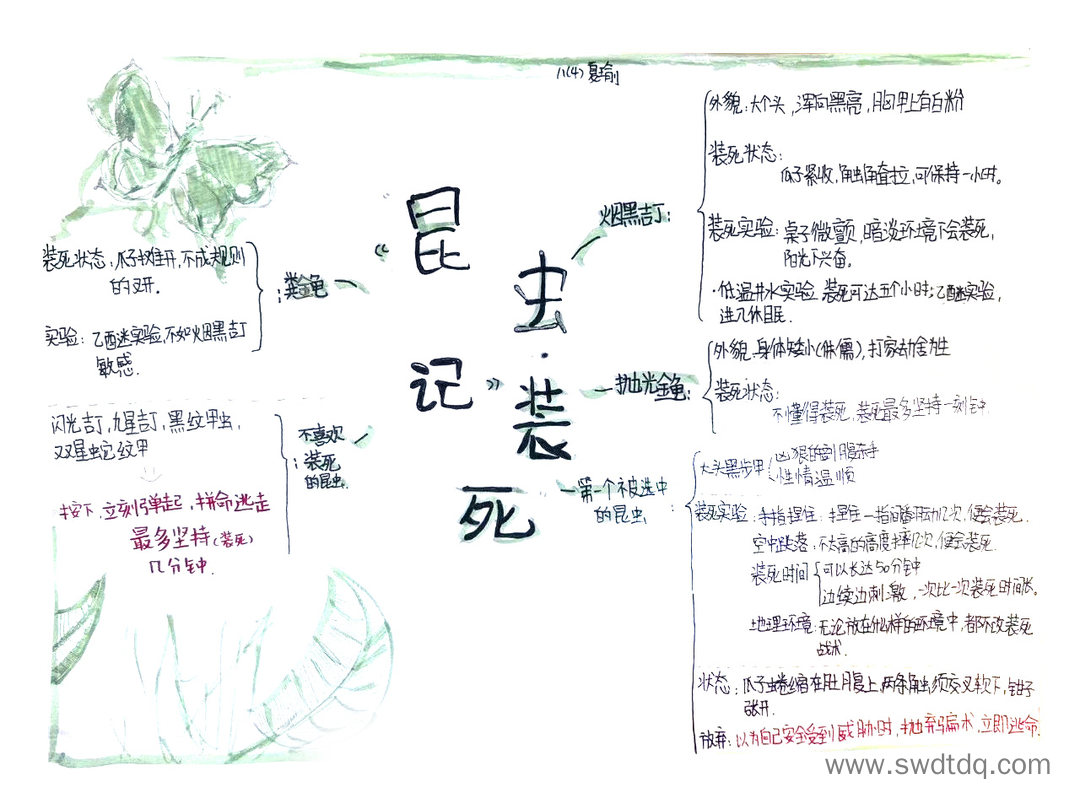 八(4) 夏瑜
《昆虫记》·装死
烟黑吉丁：
外貌：大个头，浑向黑亮，胸甲上有白粉
装死状态：
爪子紧收，触角耷拉，可保持一小时。
装死实验：桌子微颤，暗淡环境不会装死，
阳光下兴奋。
·低温井水实验 装死可达五个小时；乙醚迷实验，
进入休眠.
抛光金龟：
外貌：身体矮小(侏儒)，打家劫舍为生
装死状态：
不懂得装死，装死最多坚持一刻钟
第一个被选中
的昆虫：
大头黑步甲
凶狠的剖腹杀手
性情温顺
装死实验：手指捏住：捏住一指间翻动几次，便会装死.
空中跌落：不太高的高度摔几次，便会装死.
装死时间
可以长达50分钟
边续边刺激，一次比一次装死时间长。
地理环境：无论放在什么样的环境中，都不改装死
战术.
状态：爪子蜷缩在肚腹上，两条触须交叉软下，钳子
张开.
放弃：以为自己安全受到威胁时，抛弃骗术，立即逃命.
粪金龟：
装死状态：爪子摊开，不成规则
的叉开。
实验：乙醚迷实验，不如烟黑吉丁
敏感.
不喜欢
装死
的昆虫：
闪光吉丁，九星吉丁，黑纹甲虫，
双星蛇纹甲
按下，立刻弹起，拼命逃走
最多坚持(装死)
几分钟.
www.swdtdq.com